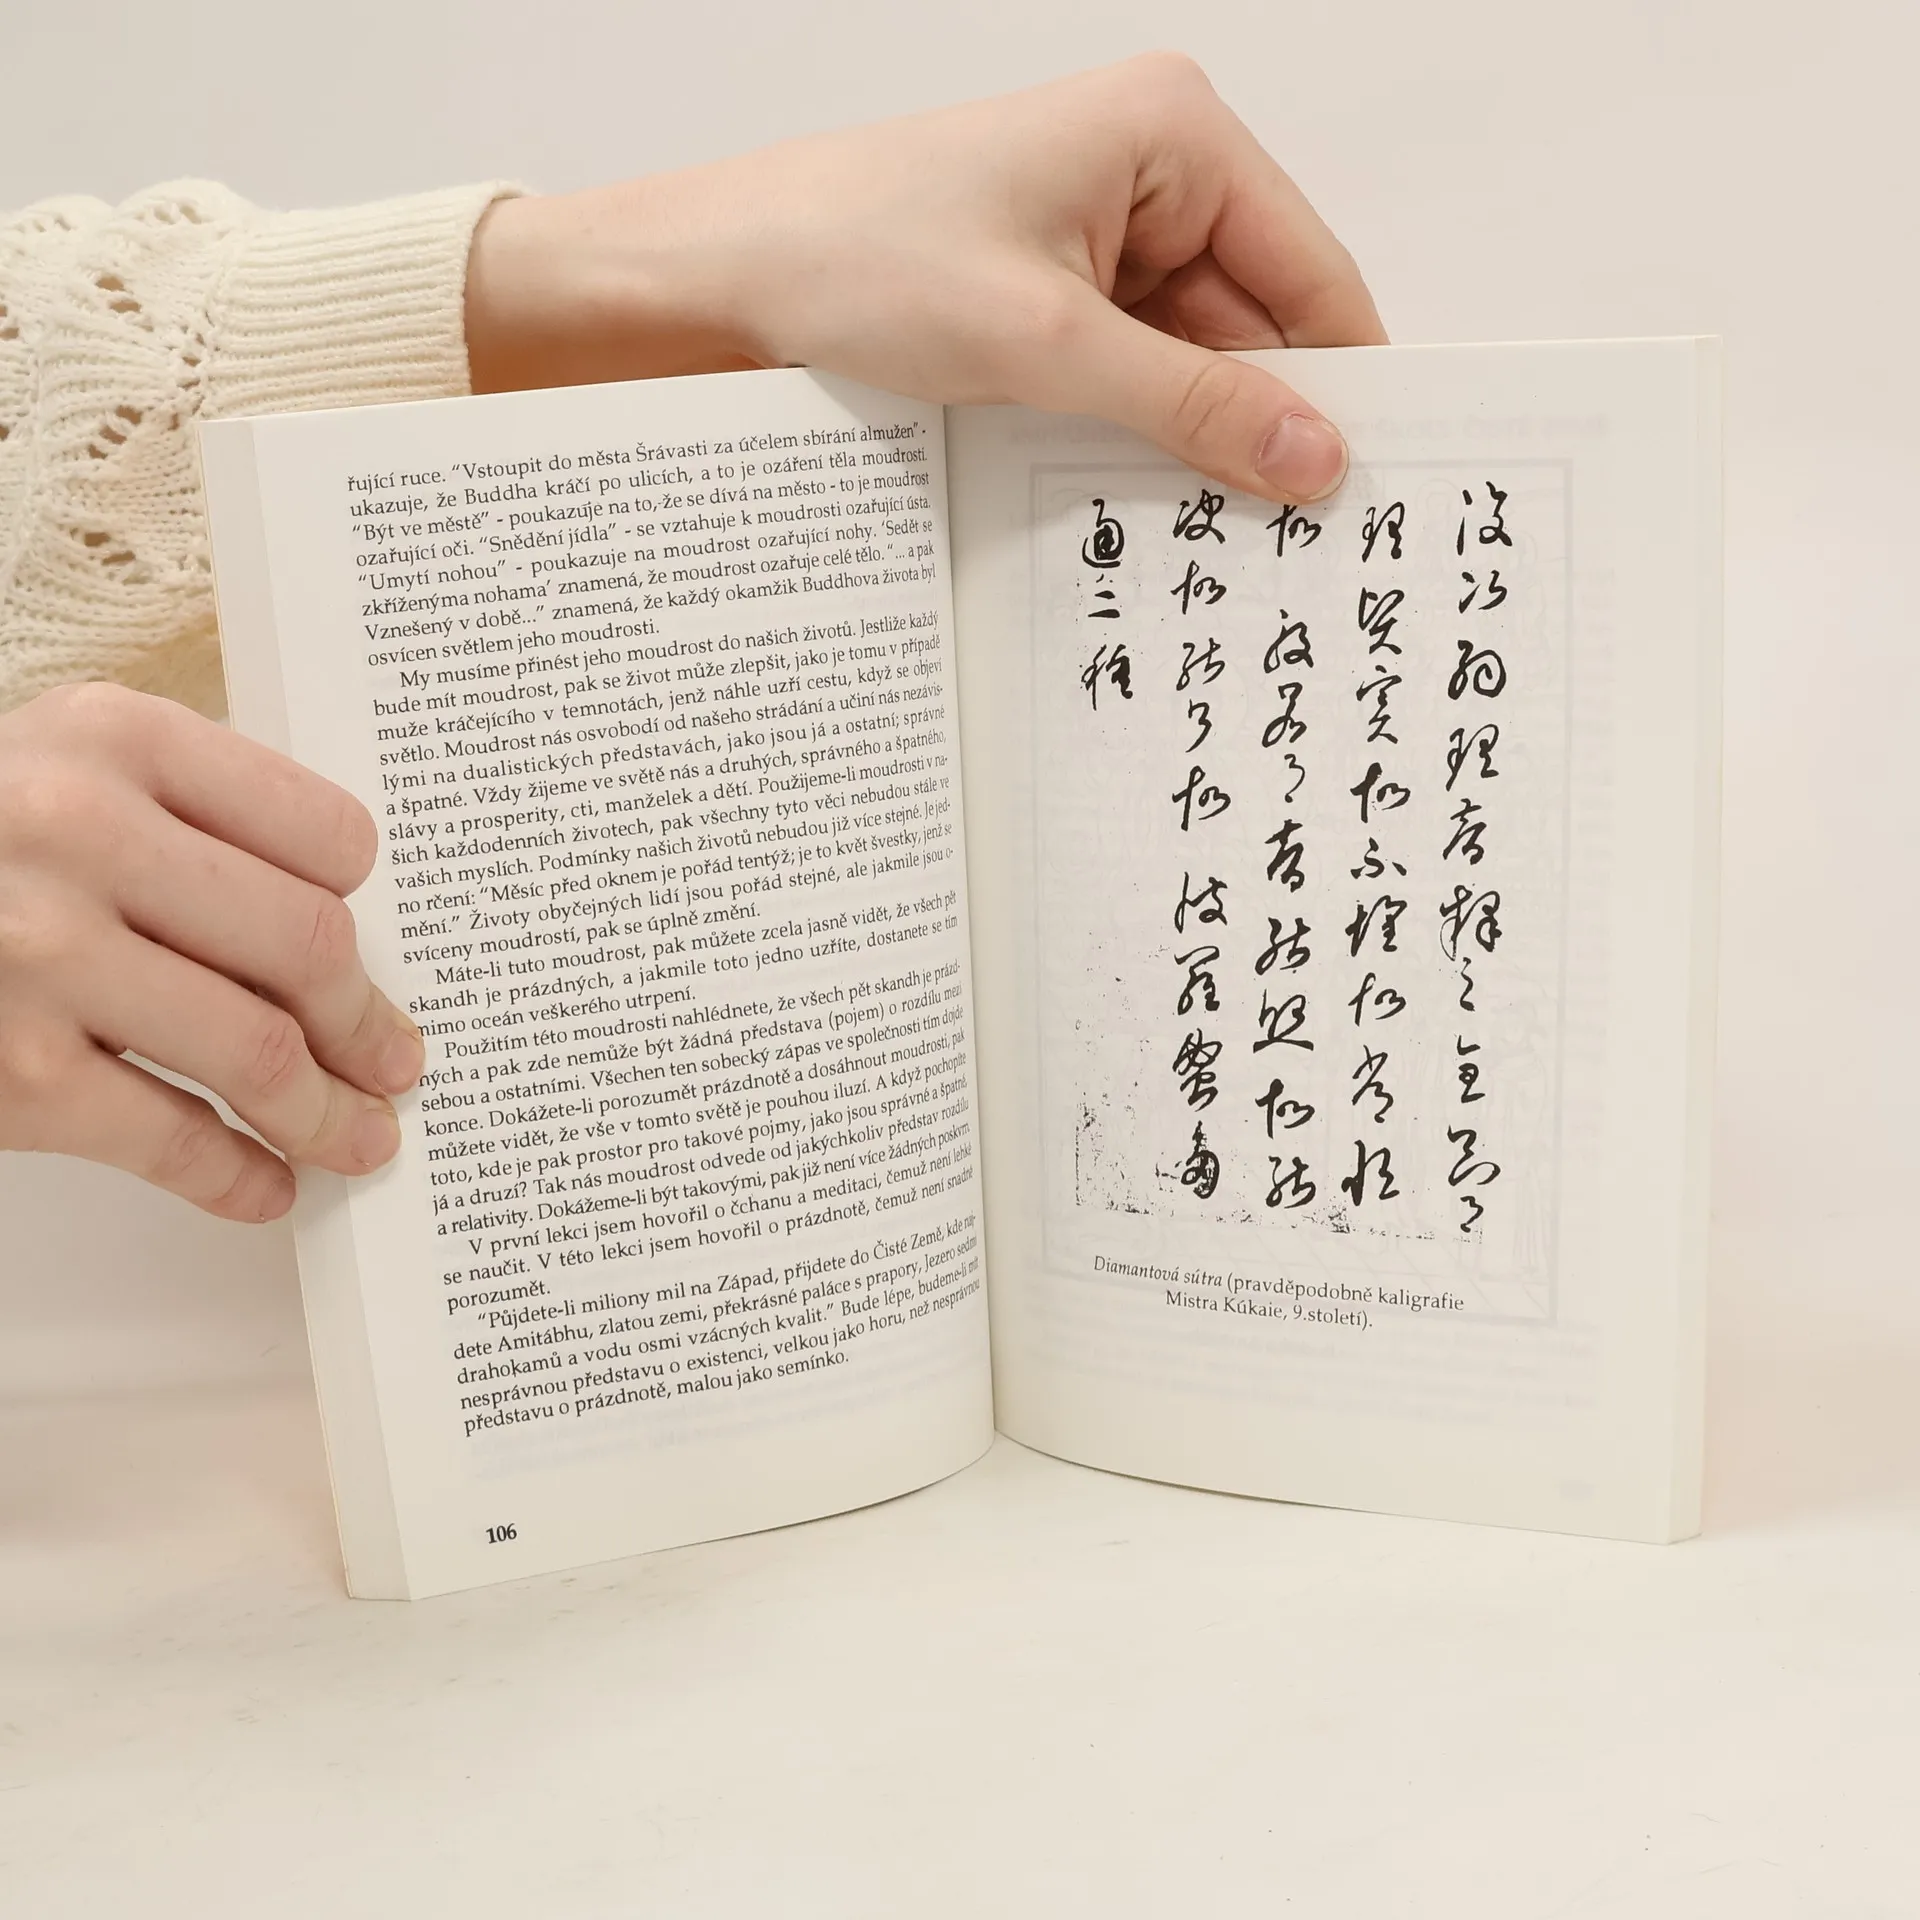 řující ruce. “Vstoupit do města Šrávasti za účelem sbírání almužen” -
ukazuje, že Buddha kráčí po ulicích, a to je ozáření těla moudrostí.
“Být ve městě” - poukazuje na to, že se dívá na město - to je moudrost
ozařující oči. “Snědění jídla” - se vztahuje k moudrosti ozařující ústa.
“Umytí nohou” - poukazuje na moudrost ozařující nohy. ‘Sedět se
zkříženýma nohama’ znamená, že moudrost ozařuje celé tělo. “... a pak
Vznešený v době...” znamená, že každý okamžik Buddhova života byl
osvícen světlem jeho moudrosti.
My musíme přinést jeho moudrost do našich životů. Jestliže každý
bude mít moudrost, pak se život může zlepšit, jako je tomu v případě
muže kráčejícího v temnotách, jenž náhle uzří cestu, když se objeví
světlo. Moudrost nás osvobodí od našeho strádání a učiní nás nezávis-
lými na dualistických představách, jako jsou já a ostatní; správné
a špatné. Vždy žijeme ve světě nás a druhých, správného a špatného,
slávy a prosperity, cti, manželek a dětí. Použijeme-li moudrosti v na-
šich každodenních životech, pak všechny tyto věci nebudou stále ve
vašich myslích. Podmínky našich životů nebudou již více stejné. Je jed-
no rčení: “Měsíc před oknem je pořád tentýž; je to květ švestky, jenž se
mění.” Životy obyčejných lidí jsou pořád stejné, ale jakmile jsou o-
svíceny moudrostí, pak se úplně změní.
Máte-li tuto moudrost, pak můžete zcela jasně vidět, že všech pět
skandh je prázdných, a jakmile toto jedno uzříte, dostanete se tím
mimo oceán veškerého utrpení.
Použitím této moudrosti nahlédnete, že všech pět skandh je prázd-
ných a pak zde nemůže být žádná představa (pojem) o rozdílu mezi
sebou a ostatními. Všechen ten sobecký zápas ve společnosti tím dojde
konce. Dokážete-li porozumět prázdnotě a dosáhnout moudrosti, pak
můžete vidět, že vše v tomto světě je pouhou iluzí. A když pochopíte
toto, kde je pak prostor pro takové pojmy, jako jsou správné a špatné,
já a druzí? Tak nás moudrost odvede od jakýchkoliv představ rozdílu
a relativity. Dokážeme-li být takovými, pak již není více žádných poskvrn.
V první lekci jsem hovořil o čchanu a meditaci, čemuž není lehké
se naučit. V této lekci jsem hovořil o prázdnotě, čemuž není snadné
porozumět.
“Půjdete-li miliony mil na Západ, přijdete do Čisté Země, kde naj-
dete Amitábhu, zlatou zemi, překrásné paláce s prapory, Jezero sedmi
drahokamů a vodu osmi vzácných kvalit.” Bude lépe, budeme-li mít
nesprávnou představu o existenci, velkou jako horu, než nesprávnou
představu o prázdnotě, malou jako semínko.
106
Diamantová sútra (pravděpodobně kaligrafie
Mistra Kúkaie, 9.století).